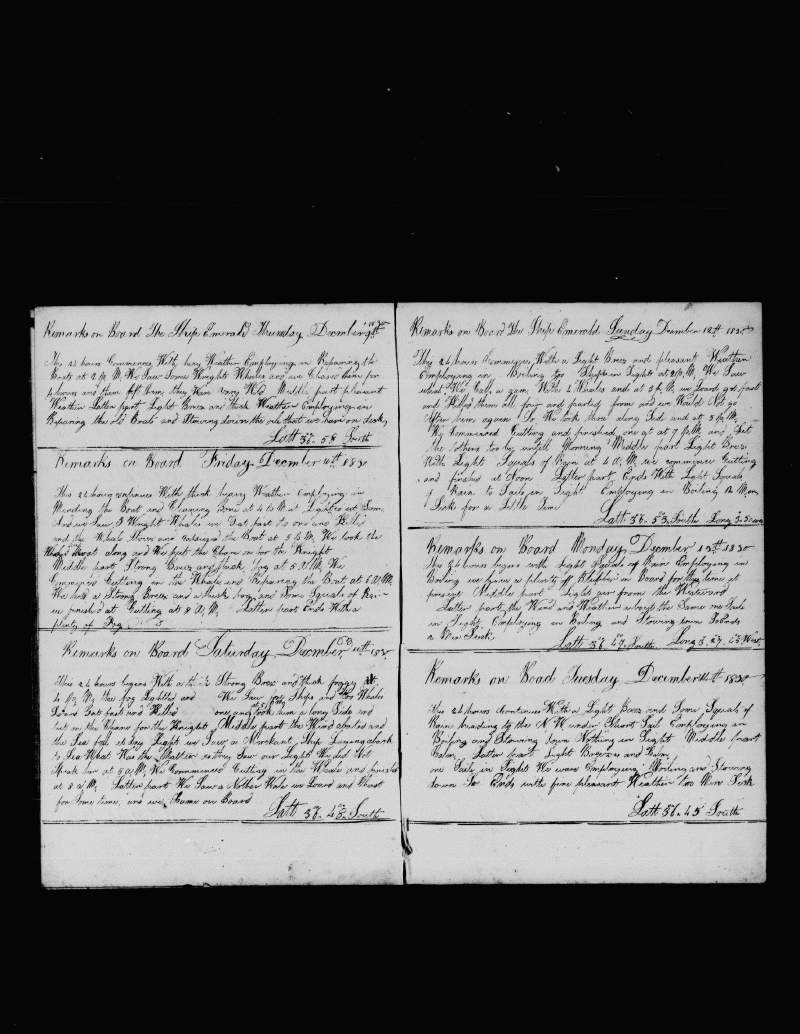 Remarks on Board The Ship Emerald Thursday December 9th
This 24 hours Commences With hazy Weather Employing in Repairing the
Boats at 2 P, M, We Saw Some Wright Whales and we Chased them for
4 hours and then left them they Wen very Wild Middle part pleasant
Weather Latter part Light Breez and thick Weather Employing in
Repairing the old Boats and Stowing down the oile that we have on Deck,
Latt 36.. 58 South
Remarks on Board Friday December 10th 1830
This 24 hours continues With thick heavy Weather Employing in
Mending the Boat and Cleaning Bone at 4 P M it Lighted up Som
And we Saw 3 Wright Whales we Gat fast to one and Killed
and the Whale Stove and the Boat at 5 P M, We took the
Whale and Boat along and We put the Chane on for the Knight
Middle part Strong Breez and thick Fog at 5 A M, We
Commenced Cutting in the Whale and Repairing the Boat at 6 A M,
We had a Strong Breez and a thick fog and Some Squals of Rain
we finished at Cutting at 8 A, M, Latter part Ends With a
plenty of Fog
Remarks on Board Saturday December 11th 1830
This 24 hours begins With a Strong Breez and thick foggy at
4 P, M, the fog Lightted and We Saw for Ships and too Whales
Gat fast and Killed one and took him a long Side and
put on the Chane for the Knight Middle part the Wind abated and
the Sea fell at Day Light we Saw a Merchant Ship
to Sea What Was the Matter as they Saw our Light We did Not
Speak her at 5 A M, We Commenced Cutting in the Whale and finished
at 8 A M, Latter part We Saw a Nother Whale we Loard and Chast
for Some time, and we Came on Board
Latt 36.. 48.. South
Remarks on Board The Ship Emerald Sunday December 12th 1830
This 24 hours Commences With a Light Breez and pleasant Weather
Employing in Boiling too Ships in Sight at 2 P, M, We Saw
what We Call a gam With 4 Whales and at 3 P, M we Loard got fast
and Killed them all four and parted from and we Could Not go
After them again So We took three along Side and at 5 P, M,
We Commenced Cutting and finished one at at 7 P M and Let
the others too by untill Morning Middle part Light Breez
With Light Squals of Rain at 4 A, M we commence Cutting
and finished at Noon Latter part Ends With Light Squals
of Rain to Sails in Sight Employing in Boiling A Man
Sick for a Little time
Latt 36.. 53 South Long
Remarks on Board Monday December 13th 1830
This 24 hours begins with Light Squals of Rain Employing in
Boiling we have a plenty of Blubber on board for this time at
present Middle part Light air from the Westward
Latter part the Wind and Weather about the Same one Saile
in Sight Employing in Boiling and Stowing down So Ends
a Men Sick.
Latt 36.. 49.. South Long 3.. 29.. 45 West,
Remarks on Board Tuesday December 14th 1830
This 24 hours Continues With a Light Breez and Some Squals of
Rain heading to the N W under Short Sail Employing in
Boiling and Stowing down Nothing in Sight Middle part
Calm, Latter part Light Breezes and Calm
one Saile in Sight We ware Employing Boiling and Stowing
down So Ends with fine pleasant Weather too Men Sick
Latt 36.. 45 South